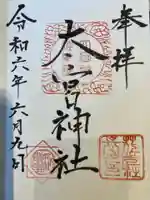 奉拝
大宮神社
令和六年六月九日